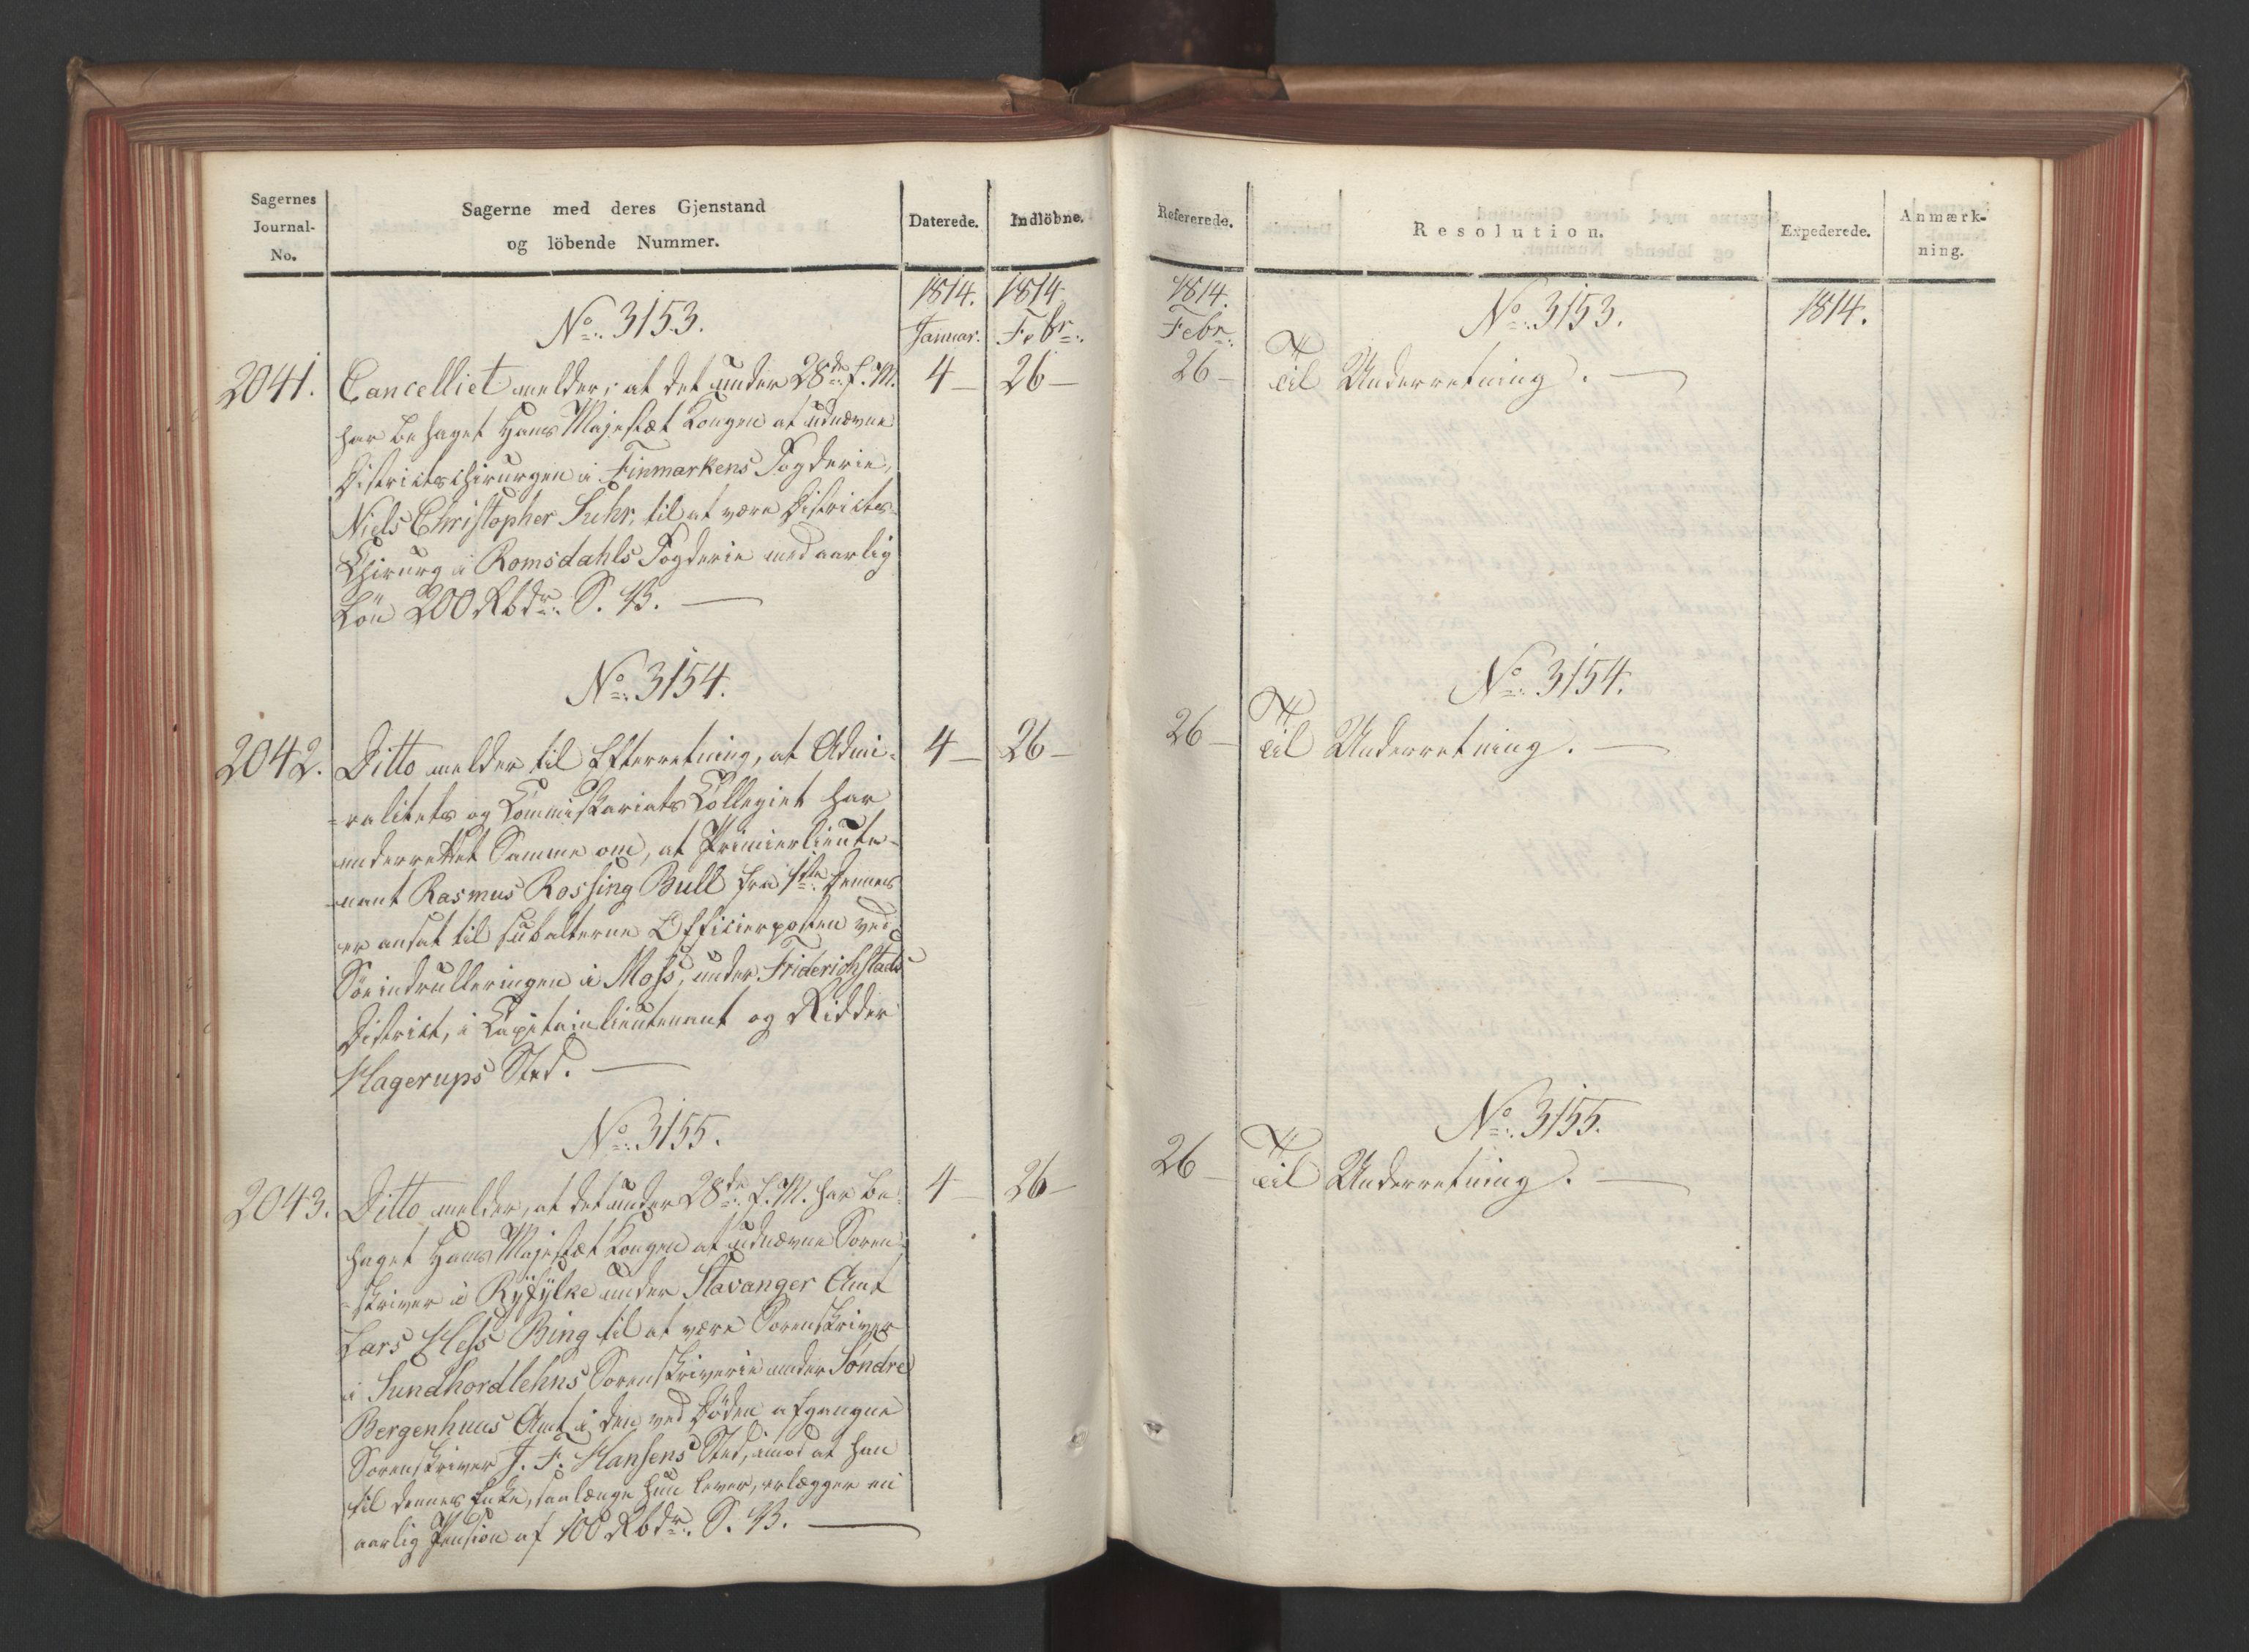 Sagernes
Journal-
No.
Sagerne med deres Gjenstand
og löbende Nummer.
Daterede.
Indlöbne.
1814.
Januar.
1814
Febr.
No. 3153.
2041. Cancelliet melder, at det under 28de f. M. 4 — 26 —
har behaget Hans Majestæt Kongen at udnævne
Districtschirurgen i Finmarkens Fogderie,
Niels Christopher Suhr, til at være Districts-
Chirurg i Romsdahls Fogderie med aarlig
Lön 200 Rbdr. S. V. —
No. 3154.
2042. Ditto melder til Efterretning, at Admi- 4 — 26 —
-ralitets og Commiskariats Collegiet har
underrettet Samme om, at Premierlieute-
-nant Rasmus Rossing Bull fra 1ste dennes
er ansat til subalterne Officierposten ved
Söeindrulleringen i Moss, under Friderichstads
District, i Capitainlieutenant og Ridder
Hagerups Sted. —
No. 3155.
2043. Ditto melder, at det under 28de f. M. har be- 4 — 26 —
haget Hans Majestæt Kongen at udnævne Soren-
-skriver i Ryfylke under Stavanger Amt
Lars Hess Bing til at være Sorenskriver
i Sundhordlehns Sorenskriverie under Söndre
Bergenhuus Amt i den ved Döden afgangne
Sorenskriver J. F. Hansens Sted, imod at han
til dennes Enke, saalænge hun lever, erlægger en
aarlig Pension af 100 Rbdr. S. V. —
Refererede.
Resolution.
Expederede.
Anmærk-
ning.
1814.
Febr.
No. 3153.
1814.
26 — Til Underretning. —
No. 3154.
26 — Til Underretning. —
No. 3155.
26 — Til Underretning. —